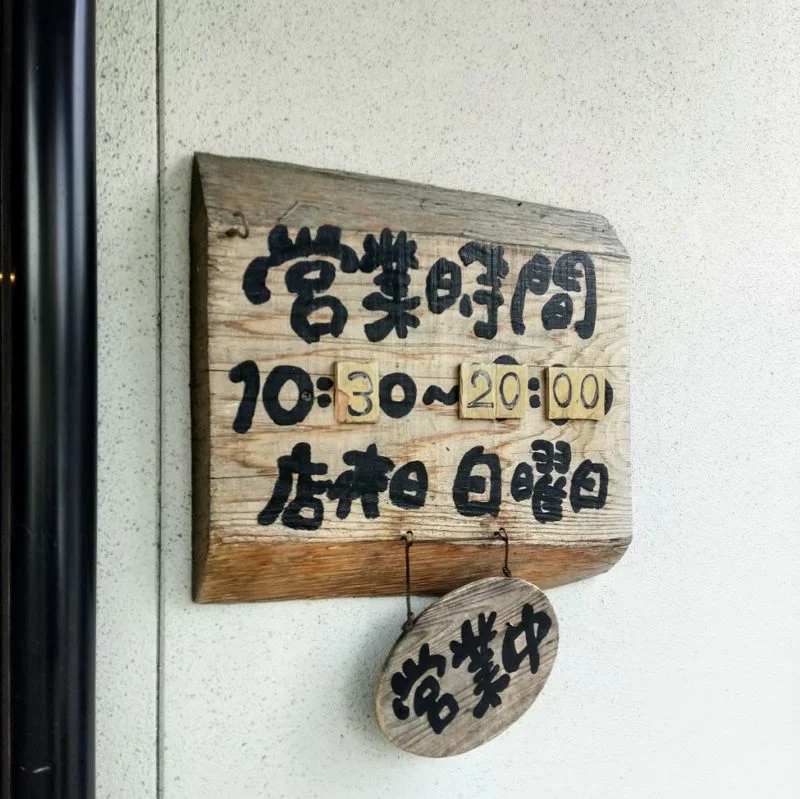 営業時間
10:30~20:00
店休日 日曜日
営業中